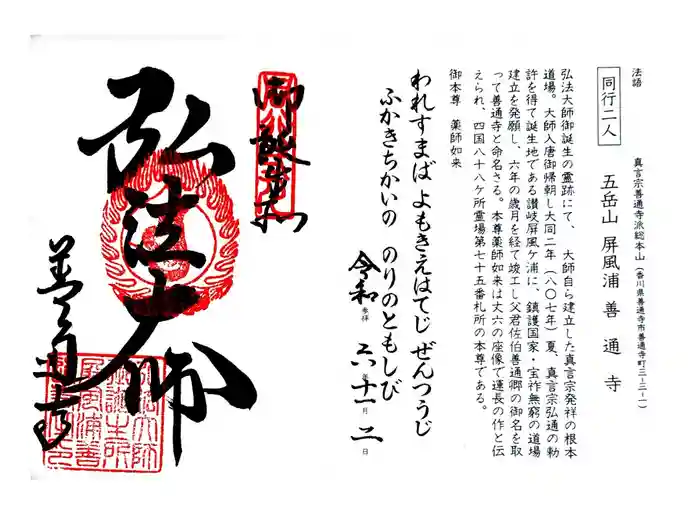 法語
同行二人
真言宗善通寺派総本山(香川県善通寺市善通寺町三-三-一)
五岳山 屏風浦 善通寺
弘法大師御誕生の霊跡にて、 大師自ら建立した真言宗発祥の根本
道場。大師入唐御帰朝し大同二年(八〇七年)夏、真言宗弘通の勅
許を得て誕生地である讃岐屏風ケ浦に、鎮護国家・宝祚無窮の道場
建立を発願し、六年の歳月を経て竣工し父君佐伯善通卿の御名を取
って善通寺と命名さる。本尊薬師如来は丈六の座像で運長の作と伝
えられ、四国八十八ケ所霊場第七十五番札所の本尊である。
御本尊 薬師如来
われすまば よもきえはてじ ぜんつうじ
ふかきちかいの のりのともしび
令和 参拝 六年十一月二日
御誕生所
弘法大師
善通寺